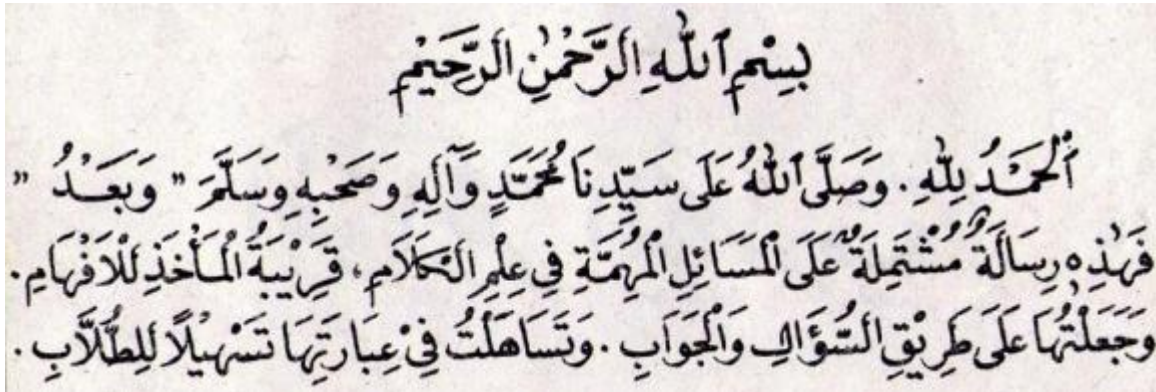 بِسْمِ ٱللّٰهِ الرَّحْمٰنِ الرَّحِيْمِ
ٱلْحَمْدُ لِلّٰهِ . وَصَلَّى ٱللّٰهُ عَلَى سَيِّدِنَا مُحَمَّدٍ وَآلِهِ وَصَحْبِهِ وَسَلَّمَ " وَبَعْدُ "
فَهٰذِهِ رِسَالَةٌ مُشْتَمِلَةٌ عَلَى الْمَسَائِلِ الْمُهِمَّةِ فِي عِلْمِ الْكَلَامِ ، قَرِيْبَةُ الْمَأْخَذِ لِلْاَفْهَامِ .
وَجَعَلْتُهَا عَلَى طَرِيْقِ السُّؤَالِ وَالْجَوَابِ . وَتَسَاهَلْتُ فِيْ عِبَارَتِهَا تَسْهِيْلًا لِلطُّلَّابِ .